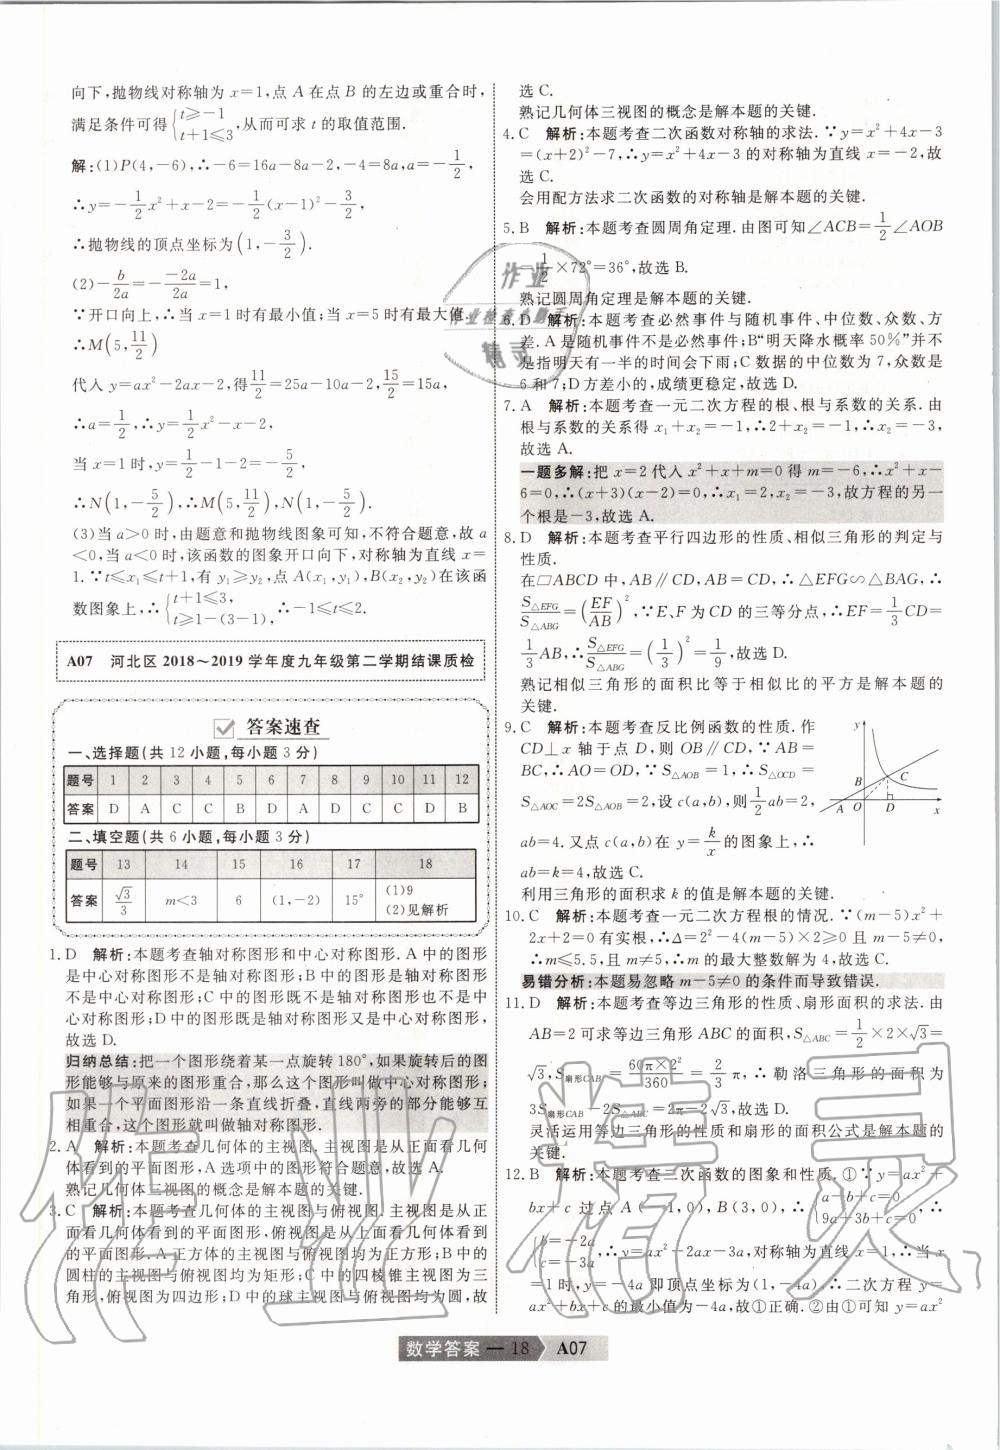 向下,抛物线对称轴为 x=1,点 A 在点 B 的左边或重合时,
满足条件可得{t≥-1 t+1≤3,从而可求 t 的取值范围.
解:(1)P(4,-6),∴-6=16a-8a-2,-4=8a,a=-1/2,
∴y=-1/2x²+x-2=-1/2(x-1)²-3/2,
∴抛物线的顶点坐标为(1,-3/2).
(2)-b/2a=-(-2a)/2a=1,
∵开口向上,∴当 x=1 时有最小值;当 x=5 时有最大值.
∴M(5,11/2)
代入 y=ax²-2ax-2,得11/2=25a-10a-2,15/2=15a,
∴a=1/2,∴y=1/2x²-x-2,
当 x=1 时,y=1/2-1-2=-5/2,
∴N(1,-5/2),∴M(5,11/2),N(1,-5/2).
(3)当 a>0 时,由题意和抛物线图象可知,不符合题意,故 a
<0,当 a<0 时,该函数的图象开口向下,对称轴为直线 x=
1.∵t≤x₁≤t+1,有 y₁≥y₂,点 A(x₁,y₁),B(x₂,y₂)在该函
数图象上,∴{t+1≤3, t≥1-(3-1), ∴-1≤t≤2.
A07 河北区 2018～2019 学年度九年级第二学期结课质检
答案速查
一、选择题(共 12 小题,每小题 3 分)
题号 1 2 3 4 5 6 7 8 9 10 11 12
答案 D A C C B D A D C C D B
二、填空题(共 6 小题,每小题 3 分)
题号 13 14 15 16 17 18
答案 √3/3 m<3 6 (1,-2) 15° (1)9 (2)见解析
1. D 解析:本题考查轴对称图形和中心对称图形. A 中的图形
是中心对称图形不是轴对称图形;B 中的图形是轴对称图形
不是中心对称图形;C 中的图形既不是轴对称图形也不是中
心对称图形;D 中的图形既是轴对称图形又是中心对称图形,
故选 D.
归纳总结:把一个图形绕着某一点旋转 180°,如果旋转后的图
形能够与原来的图形重合,那么这个图形叫做中心对称图形;
如果一个平面图形沿一条直线折叠,直线两旁的部分能够互
相重合,这个图形就叫做轴对称图形.
2. A 解析:本题考查几何体的主视图.主视图是从正面看几何
体看到的平面图形,A 选项中的图形符合题意,故选 A.
熟记几何体三视图的概念是解本题的关键.
3. C 解析:本题考查几何体的主视图与俯视图.主视图是从正
面看几何体看到的平面图形,俯视图是从上面看几何体看到
的平面图形. A 正方体的主视图与俯视图均为正方形;B 中的
圆柱的主视图与俯视图均为矩形;C 中的四棱锥主视图为三
角形,俯视图为四边形;D 中的球主视图与俯视图均为圆,故
选 C.
熟记几何体三视图的概念是解本题的关键.
4. C 解析:本题考查二次函数对称轴的求法.∵y=x²+4x-3
=(x+2)²-7,∴y=x²+4x-3 的对称轴为直线 x=-2,故
选 C.
会用配方法求二次函数的对称轴是解本题的关键.
5. B 解析:本题考查圆周角定理.由图可知∠ACB=1/2∠AOB
=1/2×72°=36°,故选 B.
熟记圆周角定理是解本题的关键.
6. D 解析:本题考查必然事件与随机事件、中位数、众数、方
差. A 是随机事件不是必然事件;B“明天降水概率 50%”并不
是指明天有一半的时间会下雨;C 数据的中位数为 7,众数是
6 和 7;D 方差小的,成绩更稳定,故选 D.
7. A 解析:本题考查一元二次方程的根、根与系数的关系.由
根与系数的关系得 x₁+x₂=-1,∴2+x₂=-1,∴x₂=-3,
故选 A.
一题多解:把 x=2 代入 x²+x+m=0 得 m=-6,∴x²+x-
6=0,∴(x+3)(x-2)=0,∴x₁=2,x₂=-3,故方程的另一
个根是-3,故选 A.
8. D 解析:本题考查平行四边形的性质、相似三角形的判定与
性质.
在□ABCD 中,AB∥CD,AB=CD,∴△EFG∽△BAG,∴
S△EFG/S△ABG=(EF/AB)²,∵E、F 为 CD 的三等分点,∴EF=1/3CD=
1/3AB,∴S△EFG/S△ABG=(1/3)²=1/9,故选 D.
熟记相似三角形的面积比等于相似比的平方是解本题的
关键.
9. C 解析:本题考查反比例函数的性质. 作
CD⊥x 轴于点 D,则 OB∥CD,∵AB=
BC,∴AO=OD,∵S△AOB=1,∴S△OCD=
S△AOC=2S△AOB=2,设 c(a,b),则1/2ab=2,
ab=4.又点 c(a,b)在 y=k/x 的图象上,∴
ab=k=4,故选 C.
y B C A O D x
利用三角形的面积求 k 的值是解本题的关键.
10. C 解析:本题考查一元二次方程根的情况.∵(m-5)x²+
2x+2=0 有实根,∴Δ=2²-4(m-5)×2≥0 且 m-5≠0,
∴m≤5.5,且 m≠5,∴m 的最大整数解为 4,故选 C.
易错分析:本题易忽略 m-5≠0 的条件而导致错误.
11. D 解析:本题考查等边三角形的性质、扇形面积的求法.由
AB=2 可求等边三角形 ABC 的面积,S△ABC=1/2×2×√3=
√3,S扇形CAB=60π×2²/360=2/3π,∴勒洛三角形的面积为
3S扇形CAB-2S△ABC=2π-2√3,故选 D.
灵活运用等边三角形的性质和扇形的面积公式是解本题的
关键.
12. B 解析:本题考查二次函数的图象和性质.①∵y=ax²+
bx+c 过点 A(-1,0),B(3,0),∴{a-b+c=0 9a+3b+c=0,∴
{b=-2a c=-3a,∴y=ax²-2ax-3a,对称轴为直线 x=1,∴当 x
=1 时,y=-4a 即顶点坐标为(1,-4a),∴二次方程 y=
ax²+bx+c 的最小值为-4a,故①正确.②由①可知,y=ax²
数学答案 — 18 A07
作业
作业检查小助手
精灵
作业精灵